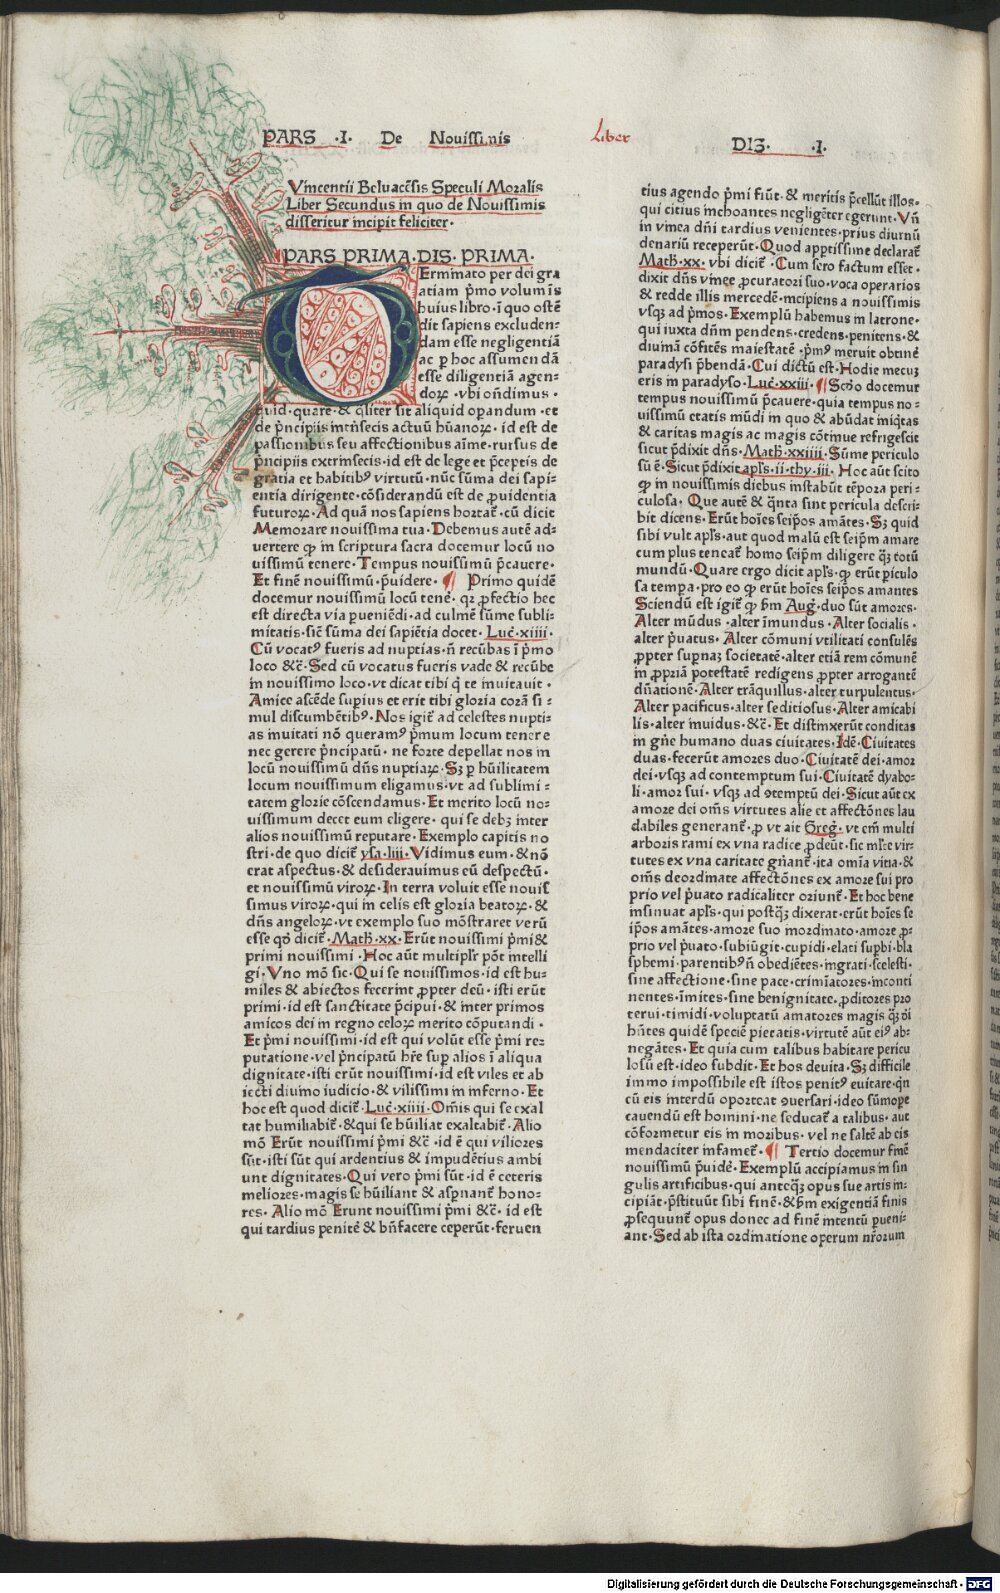 PARS .I. De Nouissimis
Liber
DIS. .I.
Vincentii Beluacēsis Speculi Moralis
Liber Secundus in quo de Nouissimis
disseritur incipit feliciter·
PARS PRIMA.DIS. PRIMA.
TErminato per dei gra
atiam p̄mo volumīs
huius libro·ī quo ostē
dit sapiens excluden-
dam esse negligentiā
ac ꝑ hoc assumendā
esse diligentiā agen-
doꝝ ·vbi on̄dimus·
quid·quare·& qͣliter sit aliquid oꝑandum·et
de p̄ncipiis int̄nsecis actuū hūanoꝝ· id est de
passionibus seu affectionibus aīme·rursus de
p̄ncipiis extrinsecis·id est de lege et p̄ceptis de
gratia et habitibꝰ virtutū·nūc sūma dei sapi-
entia dirigente·cōsiderandū est de ꝓuidentia
futuroꝝ·Ad quā nos sapiens hortat̄·cū dicit
Memorare nouissima tua·Debemus autē ad-
uertere ꝙ in scriptura sacra docemur locū no
uissimū tenere·Tempus nouissimū p̄cauere·
Et finē nouissimū·p̄uidere·¶ Primo quidē
docemur nouissimū locū tene᷑· qꝛ ꝓfectio hec
est directa via ꝑueniēdi·ad culmē sūme subli-
mitatis·sic̄ sūma dei sapiētia docet·Luc̄·xiiii·
Cū vocatꝰ fueris ad nuptias·n̄ recūbas ī p̄mo
loco &c̄·Sed cū vocatus fueris vade & recūbe
in nouissimo loco·vt dicat tibi q̇ te inuitauit·
Amice ascēde supius et erit tibi gloria corā si-
mul discumbētibꝰ·Nos igit̄ ad celestes nupti-
as inuitati nō queramꝰ p̄mum locum tenere
nec gerere p̄ncipatū·ne forte depellat nos in
locū nouissimū dn̄s nuptiaꝝ·Sꝫ ꝑ hūilitatem
locum nouissimum eligamus·vt ad sublimi-
tatem glorie cōscendamus·Et merito locū no-
uissimum decet eum eligere· qui se debꝫ inter
alios nouissimū reputare·Exemplo capitis no
stri·de quo dicit̄ ysa·liii·Vidimus eum·&nō
erat aspectus·& desiderauimus eū despectū·
et nouissimū viroꝝ·In terra voluit esse nouis
simus viroꝝ·qui in celis est gloria beatoꝝ·&
dn̄s angeloꝝ·vt exemplo suo mōstraret verū
esse qd̄ dicit̄·Math̄·xx·Erūt nouissimi p̄mi&
primi nouissimi·Hoc aūt multiplr̄ pōt intelli
gi·Vno mō sic·Qui se nouissimos·id est hu-
miles & abiectos fecerint ꝓpter deū·isti erūt
primi·id est sanctitate p̄cipui·& inter primos
amicos dei in regno celoꝝ merito cōputandi·
Et p̄mi nouissimi·id est qui volūt esse p̄mi re-
putatione·vel p̄ncipatū hr̄e suꝑ alios ī aliqua
dignitate·isti erūt nouissimi·id est viles et ab
iecti diuino iudicio·& vilissimi in inferno·Et
hoc est quod dicit̄·Luc̄·xiiii·Om̄is qui se exal
tat humiliabit̄·&qui se hūiliat exaltabit̄·Alio
mō Erūt nouissimi p̄mi &c̄·id ē qui viliores
sūt·isti sūt qui ardentius & impudētius ambi
unt dignitates·Qui vero p̄mi sūt·id ē ceteris
meliores·magis se hūiliant & asp̄nant̄ hono-
res·Alio mō Erunt nouissimi p̄mi &c̄·id est
qui tardius penitē & bn̄facere ceperūt·feruen
tius agendo p̄mi fiūt·& meritis p̄cellūt illos·
qui citius inchoantes negligēter egerunt·Vn̄
in vinea dn̄i tardius venientes·prius diurnū
denariū receperūt·Quod aꝑtissime declarat̄
Math̄·xx·vbi dicit̄·Cum sero factum esset·
dixit dn̄s vinee ꝓcuratori suo·voca operarios
& redde illis mercedē·incipiens a nouissimis
vsqꝫ ad p̄mos·Exemplū habemus in latrone·
qui iuxta dn̄m pendens·credens·penitens·&
diuinā cōfitēs maiestatē·p̄mꝰ meruit obtine᷑
paradysi p̄bendā·Cui dictū est·Hodie mecuꝫ
eris in paradyso·Luc̄·xxiii·¶Scd̄o docemur
tempus nouissimū p̄cauere·quia tempus no-
uissimū etatis mūdi in quo & abūdat iniq̇tas
& caritas magis ac magis cōtinue refrigescit
sicut p̄dixit dn̄s·Math̄·xxiiii·Sūme periculo
sū ē·Sicut p̄dixit apl̄s·ii·thy·iii·Hoc aūt scito
ꝙ in nouissimis diebus instabūt tēpora peri-
culosa·Que autē & q̄nta sint pericula descri-
bit dicens·Erūt hoīes seip̄os amātes·Sꝫ quid
sibi vult apl̄s·aut quod malū est seip̄m amare
cum plus teneat̄ homo seip̄m diligere q̄ꝫ totū
mundū·Quare ergo dicit apl̄s·ꝙ erūt piculo
sa tempa·pro eo ꝙ erūt hoīes seip̄os amantes
Sciendū est igit̄ ꝙ ẜm Auḡ·duo sūt amores·
Alter mūdus·alter īmundus·Alter socialis·
alter p̄uatus·Alter cōmuni vtilitati consulēs
ꝓpter supnaꝫ societatē·alter etiā rem cōmunē
in ꝓpriā potestatē redigens ꝓpter arrogantē
dn̄ationē·Alter trāquillus·alter turpulentus·
Alter pacificus·alter seditiosus·Alter amicabi
lis·alter inuidus·&c̄·Et distinxerūt conditas
in gn̄e humano duas ciuitates·Idē·Ciuitates
duas·fecerūt amores duo·Ciuitatē dei·amor
dei·vsqꝫ ad contemptum sui·Ciuitatē dyabo-
li·amor sui·vsqꝫ ad ↄtemptū dei·Sicut aūt ex
amore dei om̄s virtutes alie et affectōnes lau
dabiles generant̄·ꝓ vt ait Greḡ·vt em̄ multi
arbozis rami ex vna radice ꝓdeūt·sic ml̄te vir-
tutes ex vna caritate gn̄ant̄·ita omīa vitia·&
om̄s deordinate affectōnes ex amore sui pro
prio vel p̄uato radicaliter oriunt̄·Et hoc bene
insinuat apl̄s·qui postq̄ꝫ dixerat·erūt hoīes se
ip̄os amātes·amore suo inordinato·amore ꝓ-
prio vel p̄uato·subiūgit·cupidi·elati supbi·bla
sphemi·parentibꝰn̄ obediētes·ingrati·scelesti·
sine affectione·sine pace·crimīatores·inconti
nentes·īmites·sine benignitate·ꝓditores pro
terui·timidi·voluptatū amatores magis q̄ꝫ d̄i
hn̄tes quidē speciē pietatis·virtutē aūt eiꝰ ab-
negātes·Et quia cum talibus habitare pericu
losū est·ideo subdit·Et hos deuita·Sꝫ difficile
immo impossibile est istos penitꝰ euitare·q̇n
cū eis interdū oporteat ↄuersari·ideo sūmope
cauendū est homini·ne seducat̄ a talibus·aut
cōformetur eis in moribus·vel ne saltē ab eis
mendaciter infamet̄·¶ Tertio docemur finē
nouissimū p̄uide᷑·Exemplū accipiamus in sin
gulis artificibus·qui anteq̄ꝫ opus sue artis in-
cipiāt·p̄stituūt sibi finē·&ẜm exigentiā finis
ꝓsequunt̄ opus donec ad finē intentū pueni-
ant·Sed ab ista ordinatione operum nr̄orum
Digitalisierung gefördert durch die Deutsche Forschungsgemeinschaft - DFG